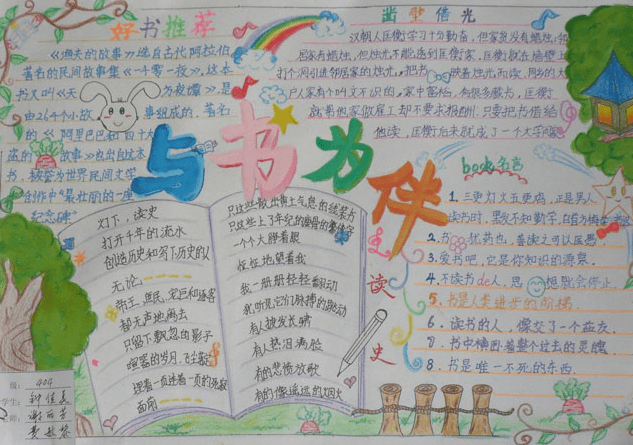 好书推荐
《渔夫的故事》选自古代阿拉伯
著名的民间故事集《一千零一夜》,这本
书又叫《天方夜谭》,是
由264个小故事组成的,著名
的《阿里巴巴和四十大
盗的故事》也出自这本
书,被誉为世界民间文学
创作中“最壮丽的一座
纪念碑”
凿壁借光
汉朝人匡衡学习十分勤奋,但家贫没有蜡烛,邻
居家有蜡烛,但烛光不能透到匡衡家,匡衡就在墙壁上
打个洞引进邻居家的烛光,把书映着烛光而读,同乡的大
户人家有个叫文不识的,家中富裕,有很多藏书,匡衡
就帮他家做雇工却不要求报酬,只要把书借给
他读,匡衡后来就成了一个大学
与书为伴
灯下,读史
打开千年的流水
创造历史和写下历史的人
无论
帝王、庶民、宠臣和逐客
都无声地离去
只留下飘忽的影子
喧嚣的岁月,飞尘
一页连着一页的
面前
只这些散出黄土气息的线装书
只这些上了年纪的
一个个睁着眼
怔怔地望着我
我一册册轻轻翻动
我听见它们脉搏的跳动
有人披发长啸
有人热泪满脸
有的悲愤放歌
有的像遥远的烟火
读史
book名言
1.三更灯火五更鸡,正是男人
读书时,黑发不知勤学早,白首方悔读书迟
2.书犹药也,善读之可以医愚
3.爱书吧,它是你知识的源泉.
4.不读书de人,思想就会停止.
5.书是人类进步的阶梯.
6.读书的人,像交了一个益友.
7.书中横卧着整个过去的灵魂.
8.书是唯一不死的东西.
级:404
学生:钟佳辰